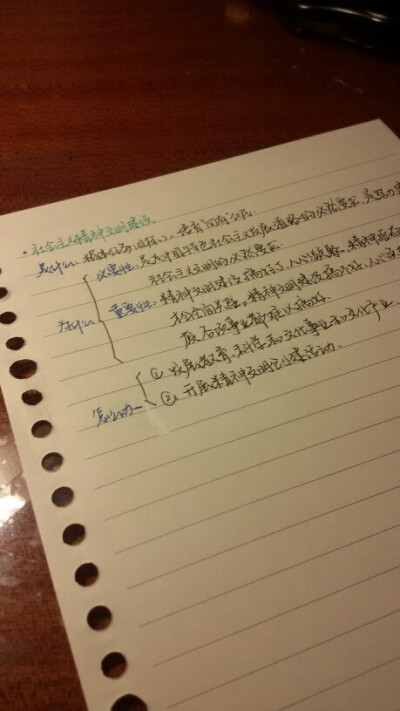 ·社会主义精神文明建设
是什么：根本任务(目标)：培育"四有"公民
为什么 必要性：是走中国特色社会主义发展道路的必然要求，是
社会主义文明的必然要求。
重要性：精神文明建设搞好了，人心凝聚，精神
各项事业都难以搞好。
怎么办 ①发展教育、科学和文化事业和文化产业，
②开展精神文明创建活动。